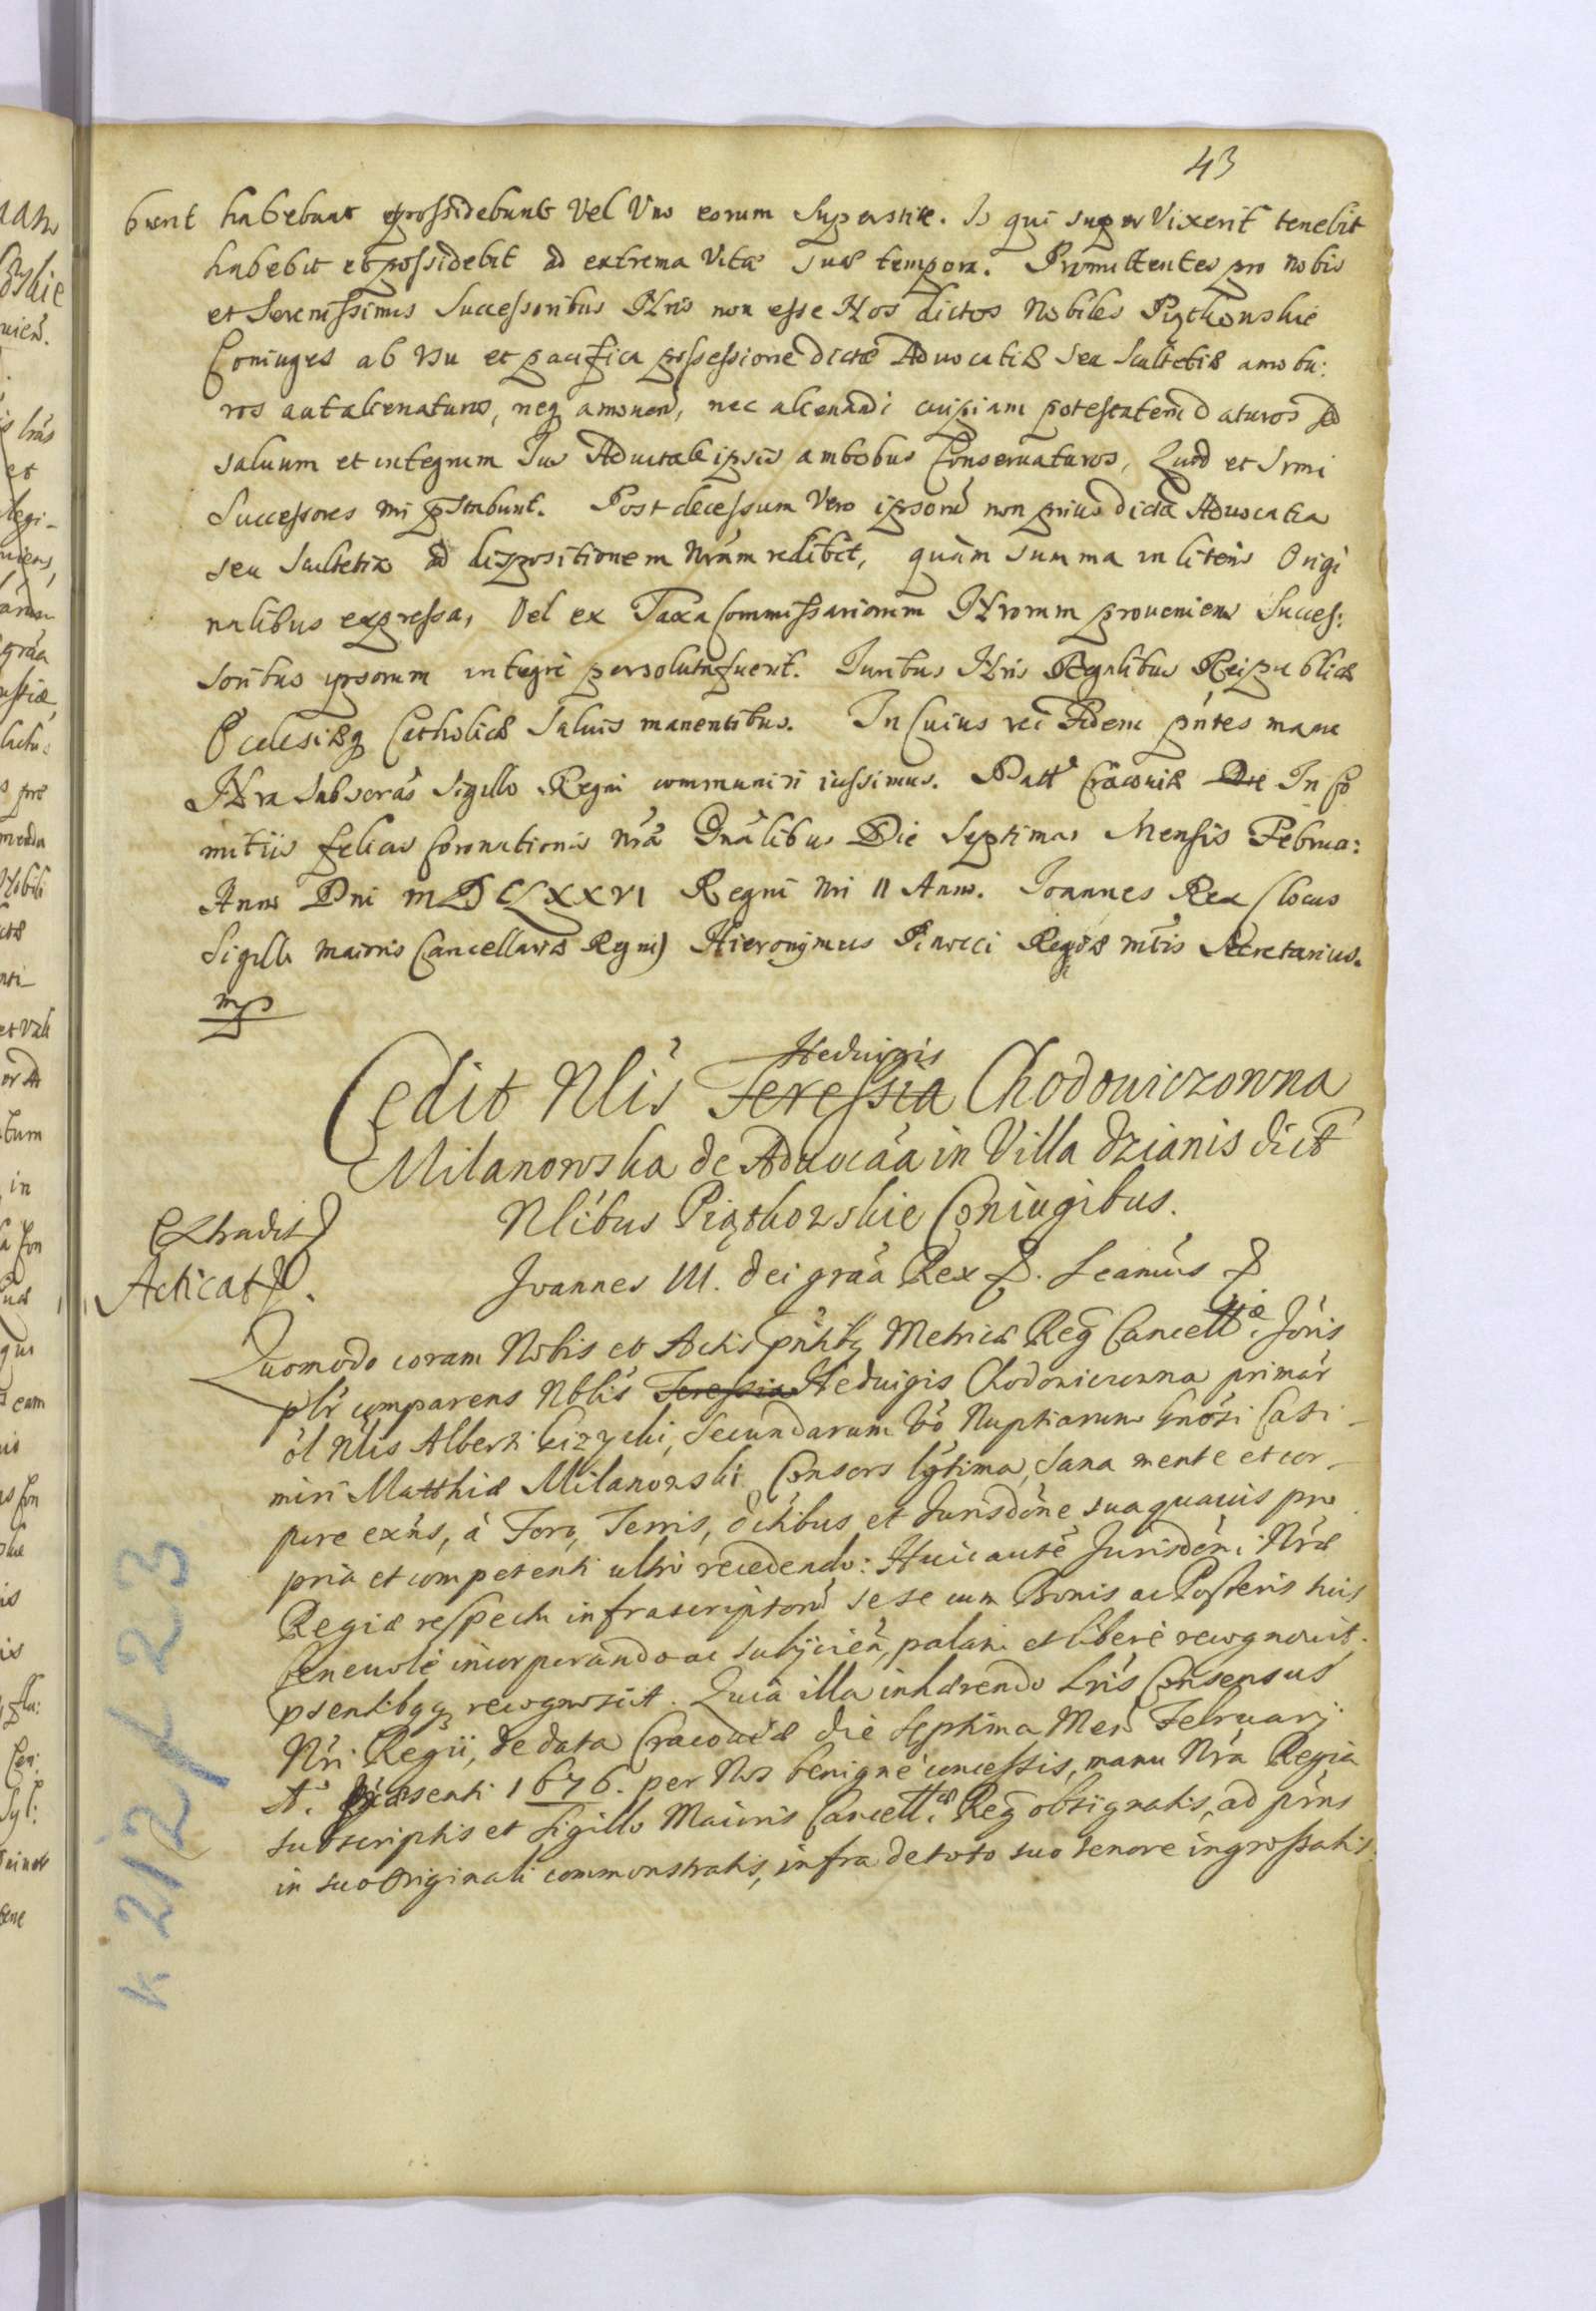 43
bunt habebunt et possidebunt Vel Uno eorum Superstite. Is qui super Vixerit tenebit
habebit et possidebit ad extrema Vitæ suæ tempora. Promittentes pro nobis
et Serenissimis Successoribus Nris non esse Nos dictos Nobiles Piątkowskie
Coniuges ab usu et pacifica possessione dictæ Advocatiæ seu Scultetiæ amotu:
ros aut alienaturos, neq amonen̄, nec alienandi cuipiam potestatem daturos sed
saluum et integrum Ius Aduitale ipsis ambobus Conseruaturos, Quod et Srmi
Successores nri pstabunt. Post decessum Vero ipsorū non prius dicta Aduocatia
seu Scultetia ad dispositionem nrám redibit, quàm summa in literis Origi
nalibus expressa, Vel ex Taxa Commissariorum Nrorum proueniens Succes:
soribus ipsorum integrè persoluta fuerit. Iuribus Nris Regalibus Reipublicæ
Ecclesiæq Catholicæ Saluis manentibus. In Cuius rei Fidem pn̄tes manu
Nra Subscrás Sigillo Regni communiri iussimus. Datt Cracouiæ Die In Co
mitiis felicis Coronationis nrǽ Gnálibus Die Septima Mensis Februa:
Anno Dni MDCLXXVI Regni Nri II Anno. Ioannes Rex (locus
Sigilli maioris Cancellariæ Regni) Hieronymus Pinocci Regiæ mtis Secretarius.
mp
Heduigis
Cedit Nlis Teressia Chodowiczowna
Milanowska de Aduocáa in Villa Dzianis dict
Nlibus Piątkowskie Coniugibus.
Extradit
Acticat.
Joannes III. Dei graá Rex P. Leamus P
Quomodo coram Nobis et Actis pn̄tibq Metricæ Reg Cancellᵃᵉ: Joris
plr̄ comparens Nblis Teressia Heduigis Chodowiczowna primar
ol Nlis Alberti Gizycki, secundarum vō Nuptiarum Gnósi Casi-
miri Matthiæ Milanowski Consors lgtima, sana mente et cor-
pore exn̄s, à Foro, Terris, dctibus et Jurisdōne sua quauis pro
pria et competenti ultro recedendo: Huic autē Jurisdōni Nrǽ
Regiæ respectu infrascriptorū sese cum Bonis ac Posteris suis
beneuolè incorporando ac subijcien̄, palam et liberè recognouit.
psentibqq recognoscit. Quia illa inhærendo Lris Consensus
Nri Regii, de data Cracouiæ die Septima Men̄ Februarij
A. præsenti 1676. per Nos benignè concessis, manu Nrá Regia
subscriptis et Sigillo Maioris Cancellᵃᵉ Reg obsignatis, ad prn̄s
in suo Originali commonstratis, infra de toto suo tenore ingrossatis
K 212/L23